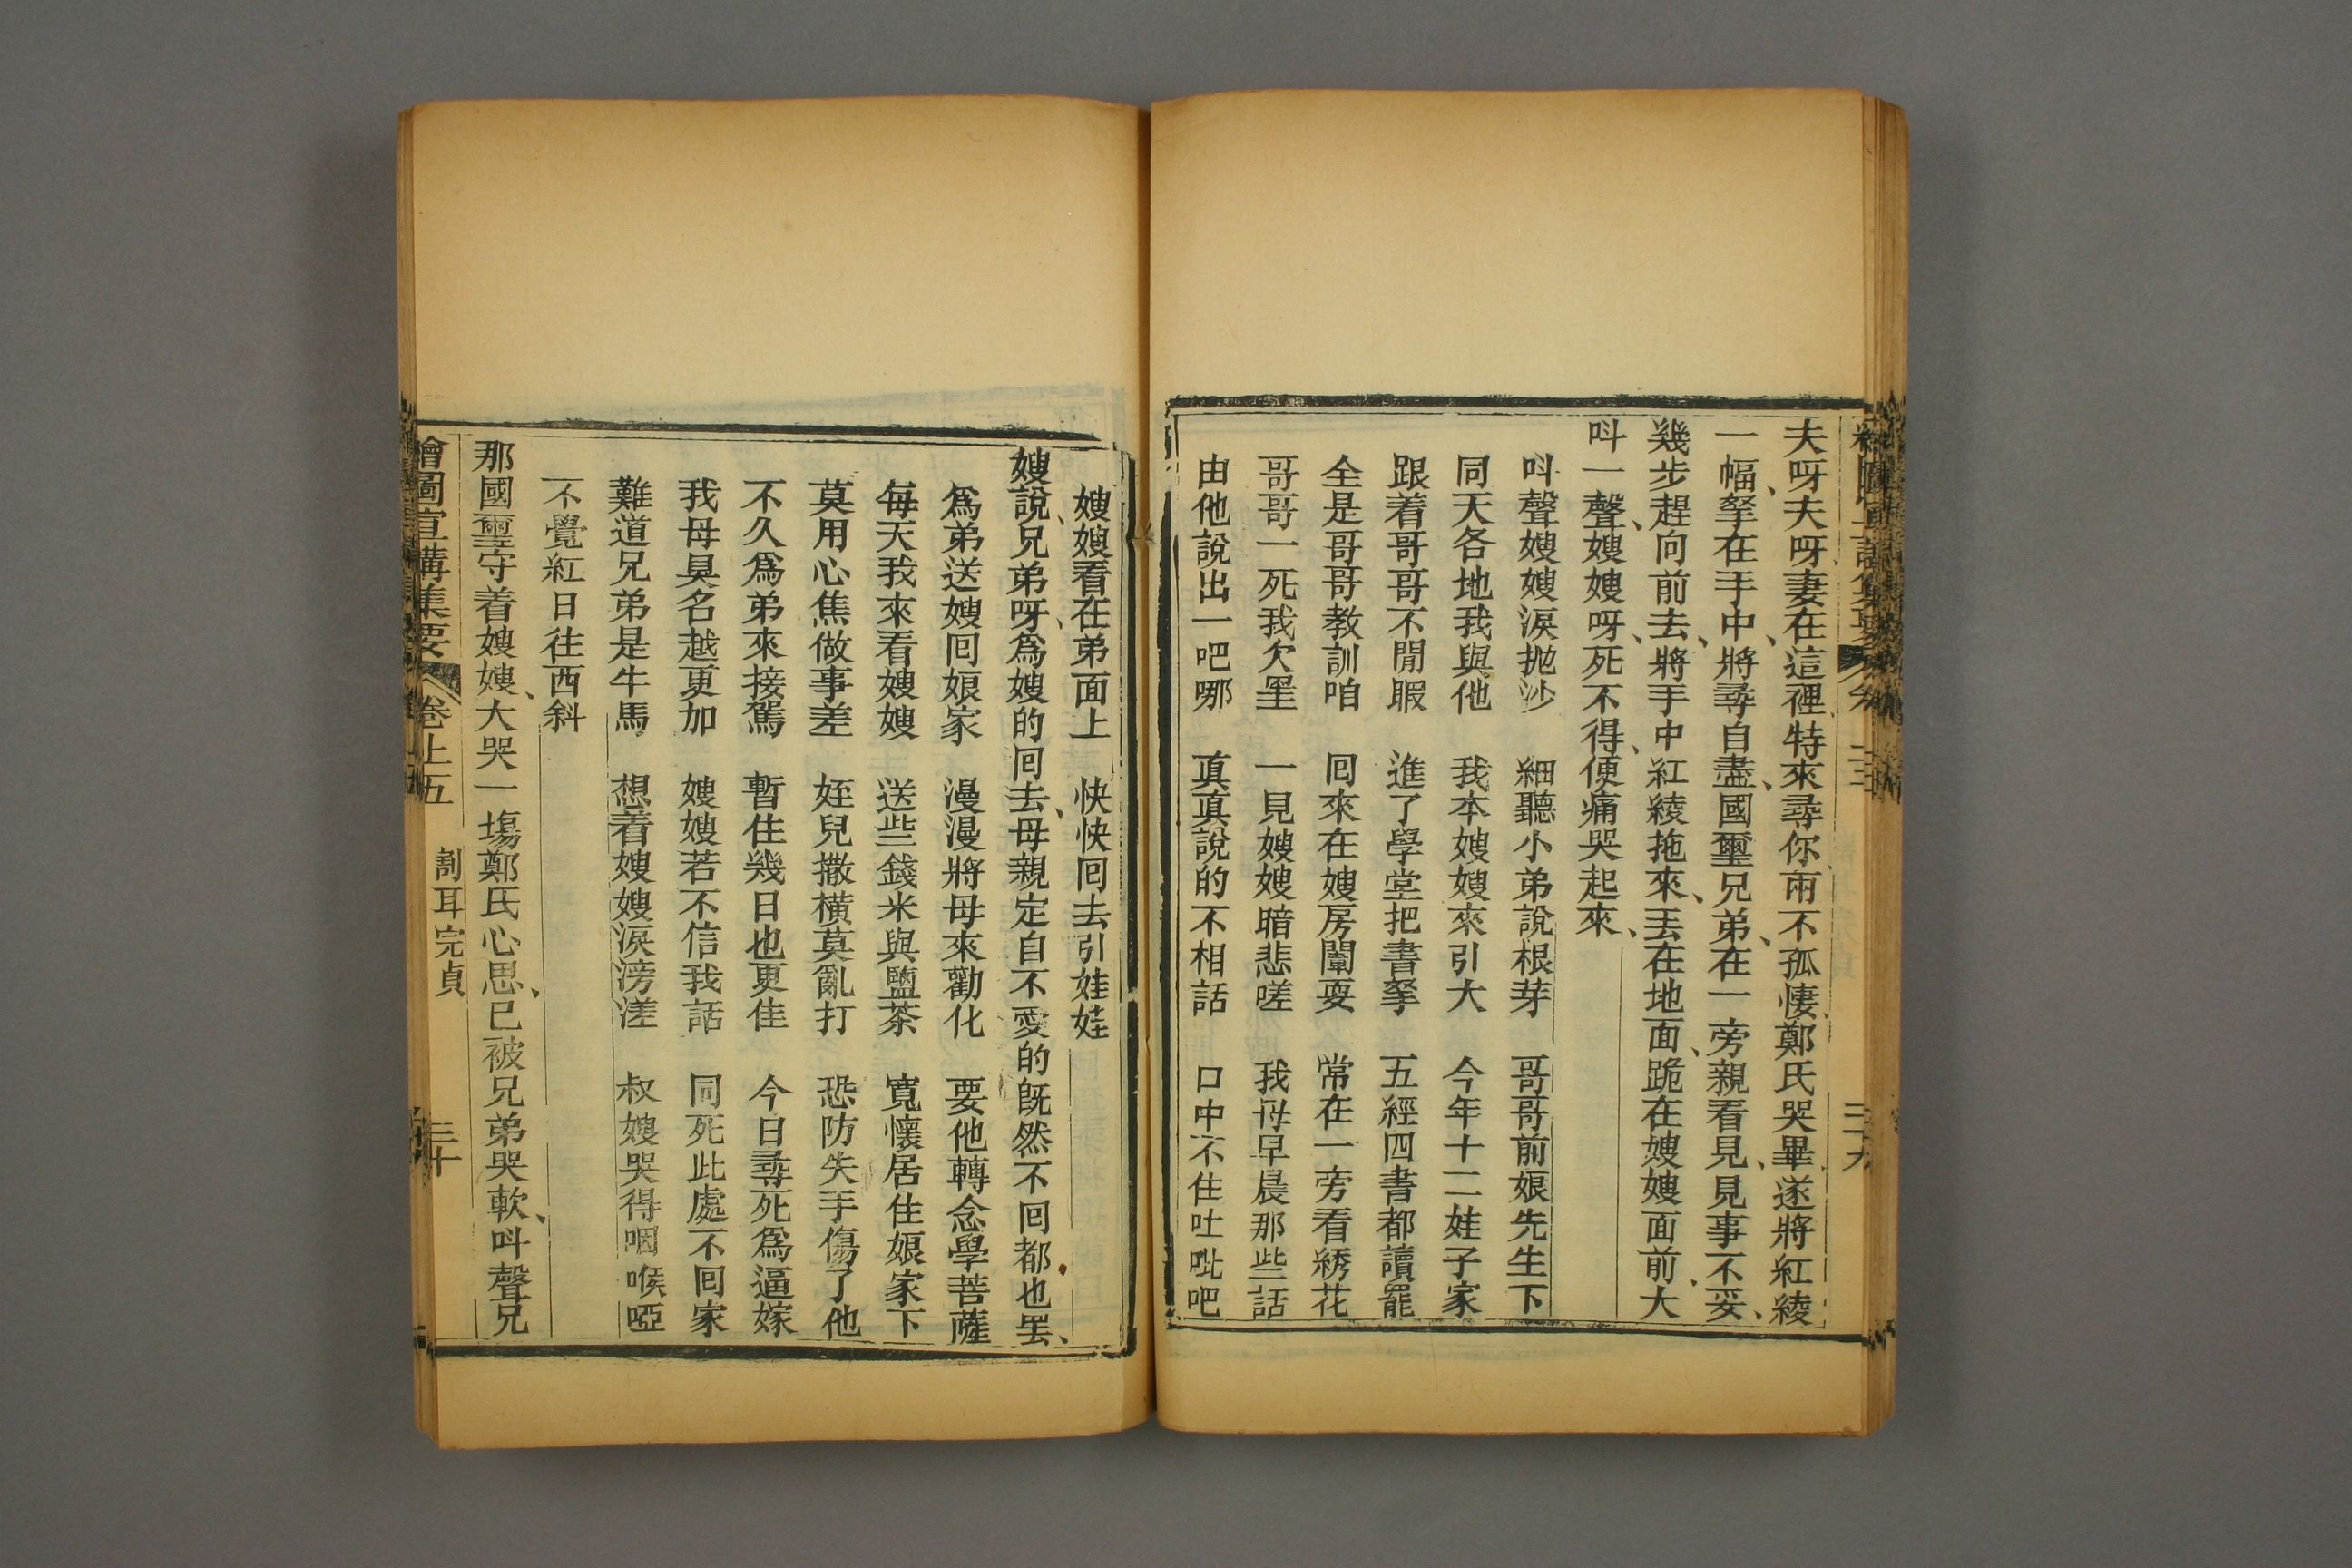 夫呀夫呀妻在這裡特來尋你兩不孤悽鄭氏哭畢遂將紅綾
一幅、拏在手中、將尋自盡、國璽兄弟、在一旁親看見、見事不妥、
幾步趕向前去、將手中紅綾拖來、丟在地面、跪在嫂嫂面前、大
呌一聲、嫂嫂呀、死不得、便痛哭起來、
呌聲嫂嫂淚抛沙 細聽小弟說根芽 哥哥前娘先生下
同天各地我與他 我本嫂嫂來引大 今年十二娃子家
跟着哥哥不閒暇 進了學堂把書拏 五經四書都讀罷
全是哥哥教訓咱 回來在嫂房闈耍 常在一旁看綉花
哥哥一死我欠里 一見嫂嫂暗悲嗟 我母早晨那些話
由他說出一吧哪 真真說的不相話 口中不住吐吡吧
嫂嫂看在弟面上 快快回去引娃娃
嫂說、兄弟呀、爲嫂的回去、母親定自不愛的既然不回都也罢、
爲弟送嫂回娘家 漫漫將母來勸化 要他轉念學菩薩
每天我來看嫂嫂 送些錢米與鹽茶 寬懷居住娘家下
莫用心焦做事差 姪兒撒橫莫亂打 恐防失手傷了他
不久爲弟來接駕 暫住幾日也更佳 今日尋死爲逼嫁
我母臭名越更加 嫂嫂若不信我話 同死此處不回家
難道兄弟是牛馬 想着嫂嫂淚滂溠 叔嫂哭得咽喉啞
不覺紅日往西斜
那國璽守着嫂嫂、大哭一塲鄭氏心思、已被兄弟哭軟、呌聲兄
繪圖宣講集要 卷上五 割耳完貞 三十